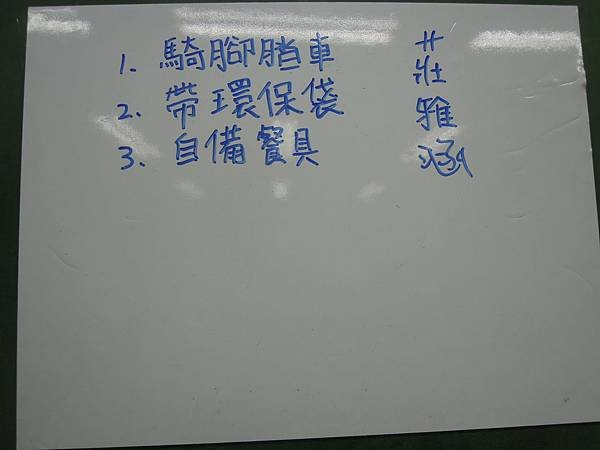 1. 騎腳踏車
2. 帶環保袋
3. 自備餐具
莊雅涵